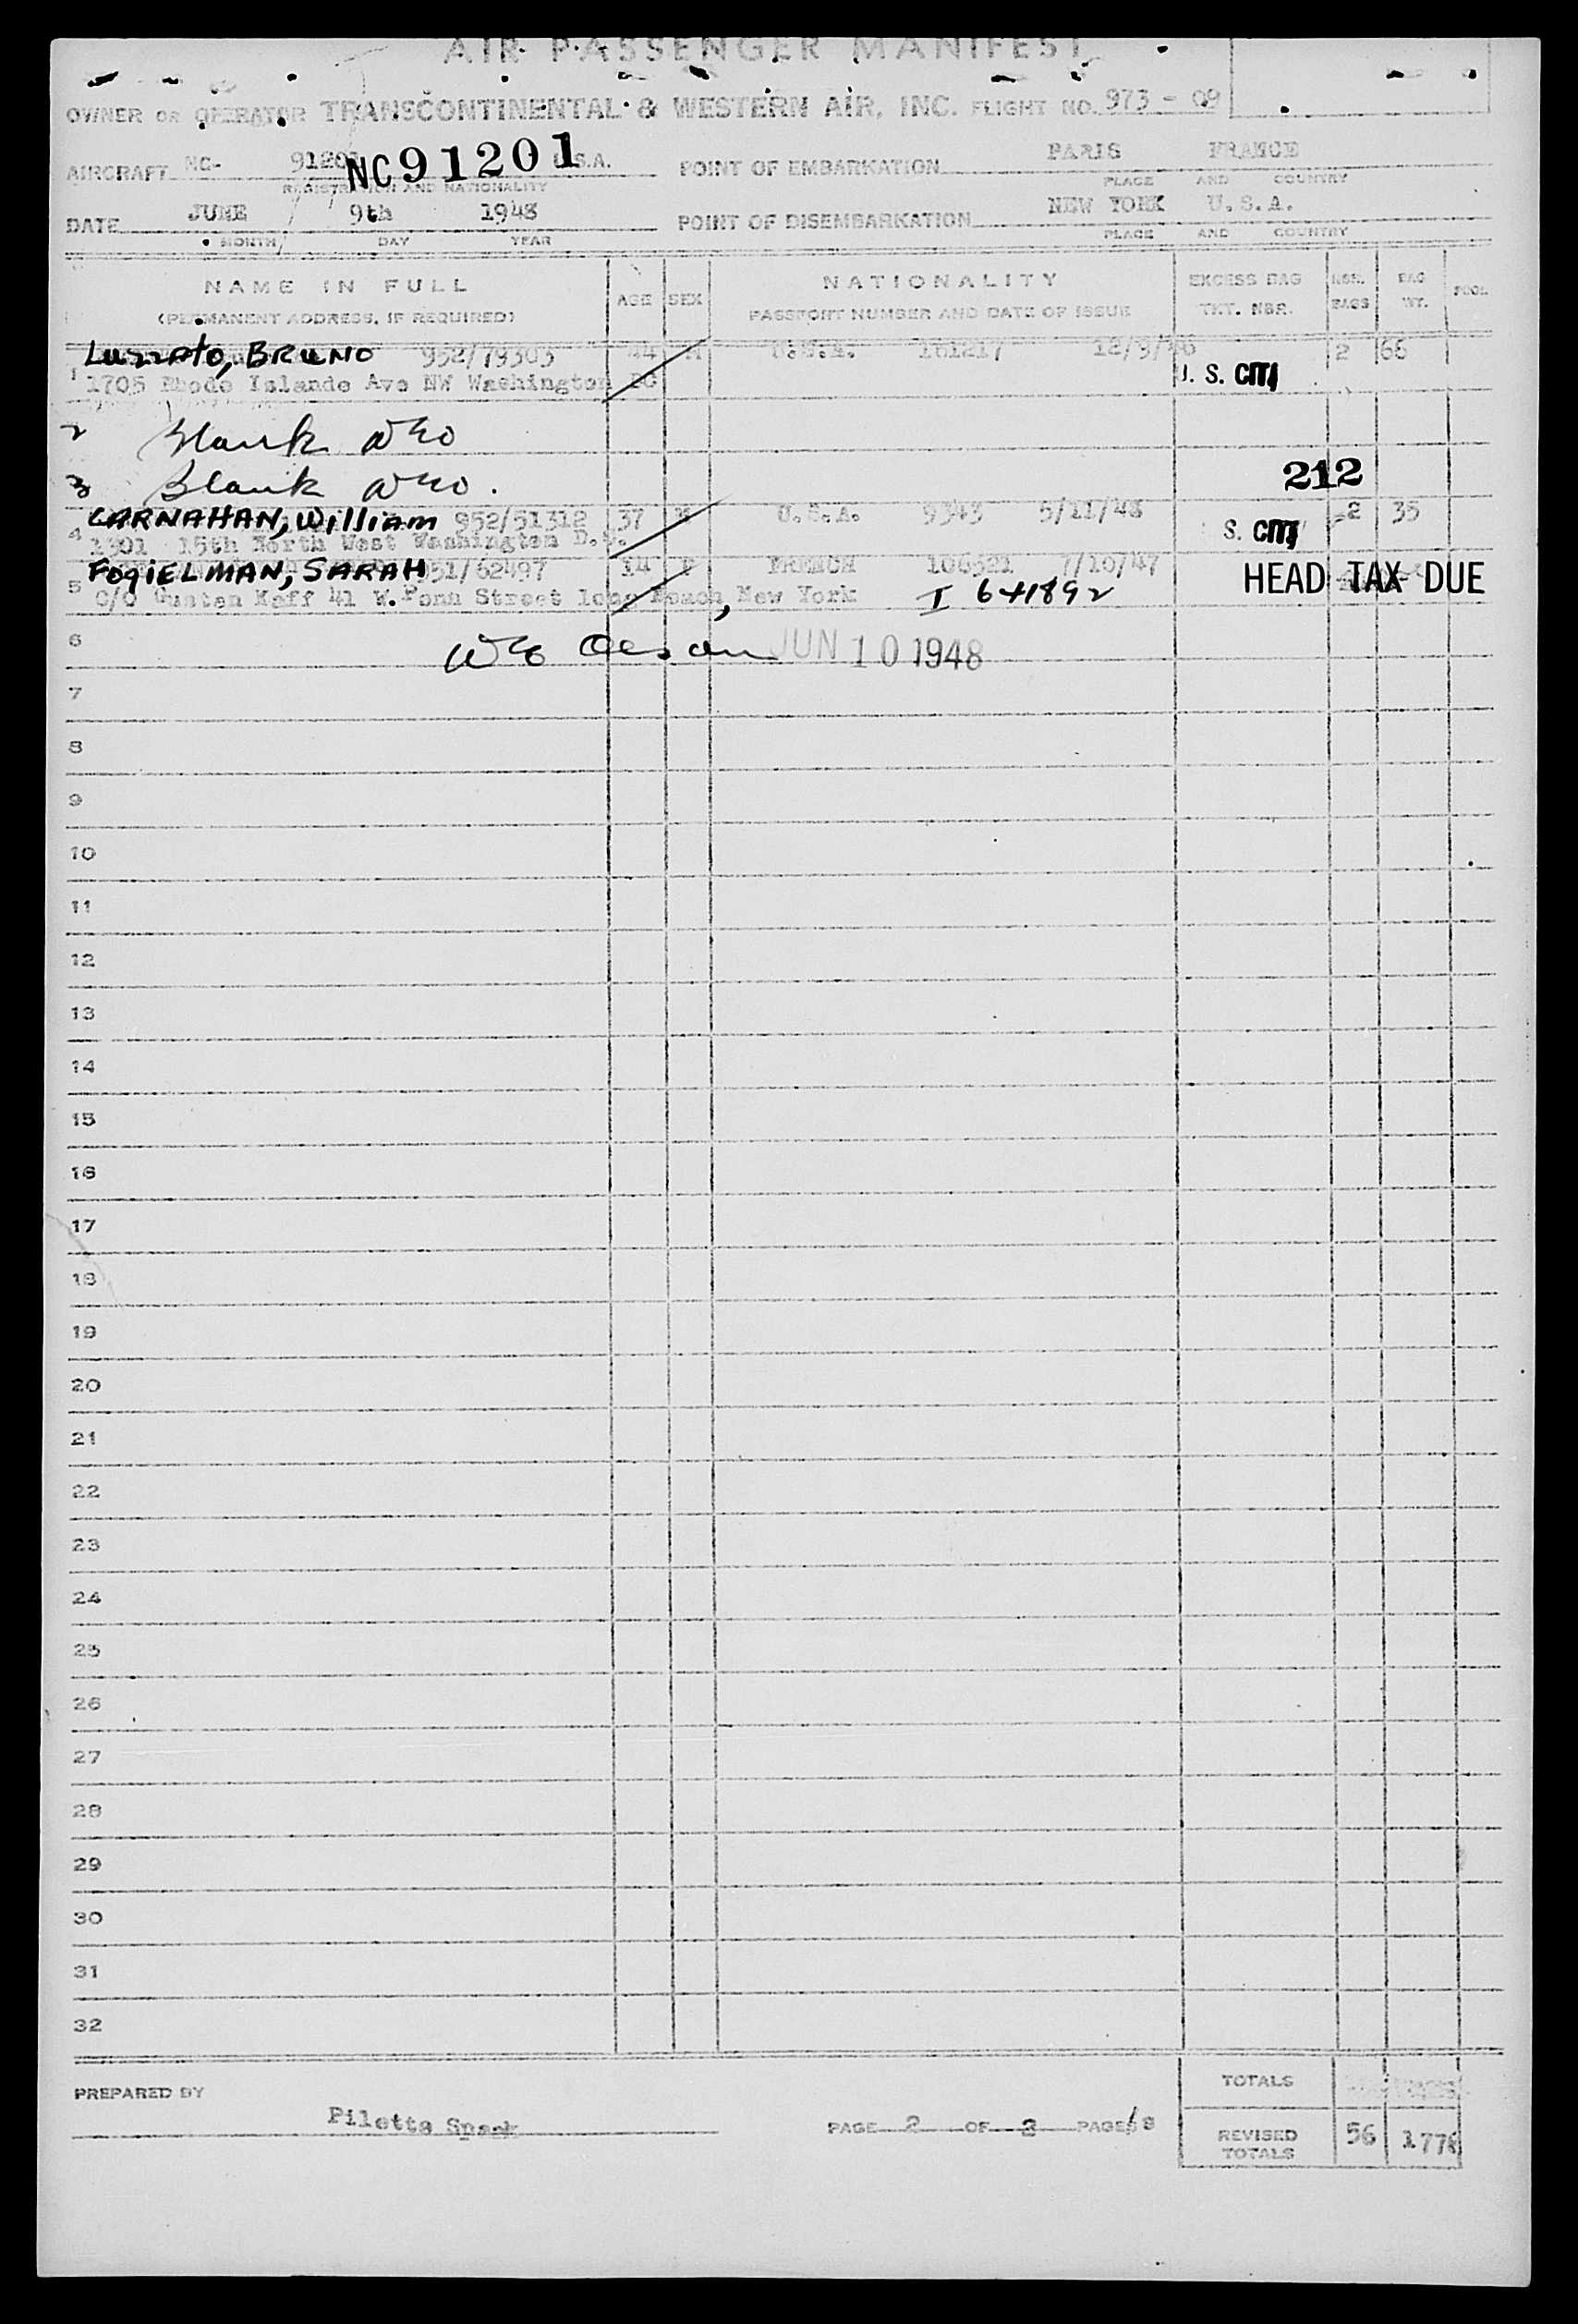 AIR PASSENGER MANIFEST
OWNER OR OPERATOR TRANSCONTINENTAL & WESTERN AIR, INC. FLIGHT NO. 973 - 09
AIRCRAFT NC- 91201 NC91201 U.S.A. POINT OF EMBARKATION PARIS FRANCE
REGISTRATION AND NATIONALITY PLACE AND COUNTRY
DATE JUNE 9th 1948 POINT OF DISEMBARKATION NEW YORK U.S.A.
MONTH DAY YEAR PLACE AND COUNTRY
NAME IN FULL AGE SEX NATIONALITY EXCESS BAG NBR. BAG POOL
(PERMANENT ADDRESS, IF REQUIRED) PASSPORT NUMBER AND DATE OF ISSUE TKT. NBR. BAGS WT.
1 Luzzato, BRUNO 952/79303 44 M U.S.A. 161217 2 66
1705 Rhode Islande Ave NW Washington DC U. S. CIT
2 Blank WEO
3 Blank WEO.
212
4 CARNAHAN, William 952/51312 37 M U.S.A. 9343 5/11/48 2 35
1301 15th North West Washington D.C. S. CIT
5 FOGIELMAN, SARAH 951/62497 14 F FRENCH 106521 7/10/47 HEAD TAX DUE
C/O Gusten Keff 41 W. Penn Street long Beach, New York I 641892
6 WE Olson JUN 10 1948
7
8
9
10
11
12
13
14
15
16
17
18
19
20
21
22
23
24
25
26
27
28
29
30
31
32
TOTALS
PREPARED BY Piletta Spack PAGE 2 OF 2 PAGES
REVISED TOTALS 56 1778